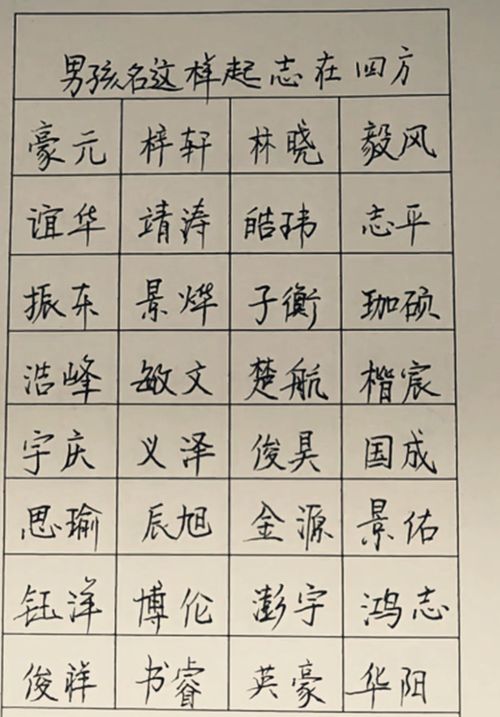 男孩名这样起志在四方
豪元 梓轩 林晓 毅风
谊华 靖涛 皓玮 志平
振东 景烨 子衡 珈硕
浩峰 敏文 楚航 楷宸
宇庆 义泽 俊昊 国成
思瑜 辰旭 金源 景佑
钰洋 博伦 澎宇 鸿志
俊祥 书睿 英豪 华阳